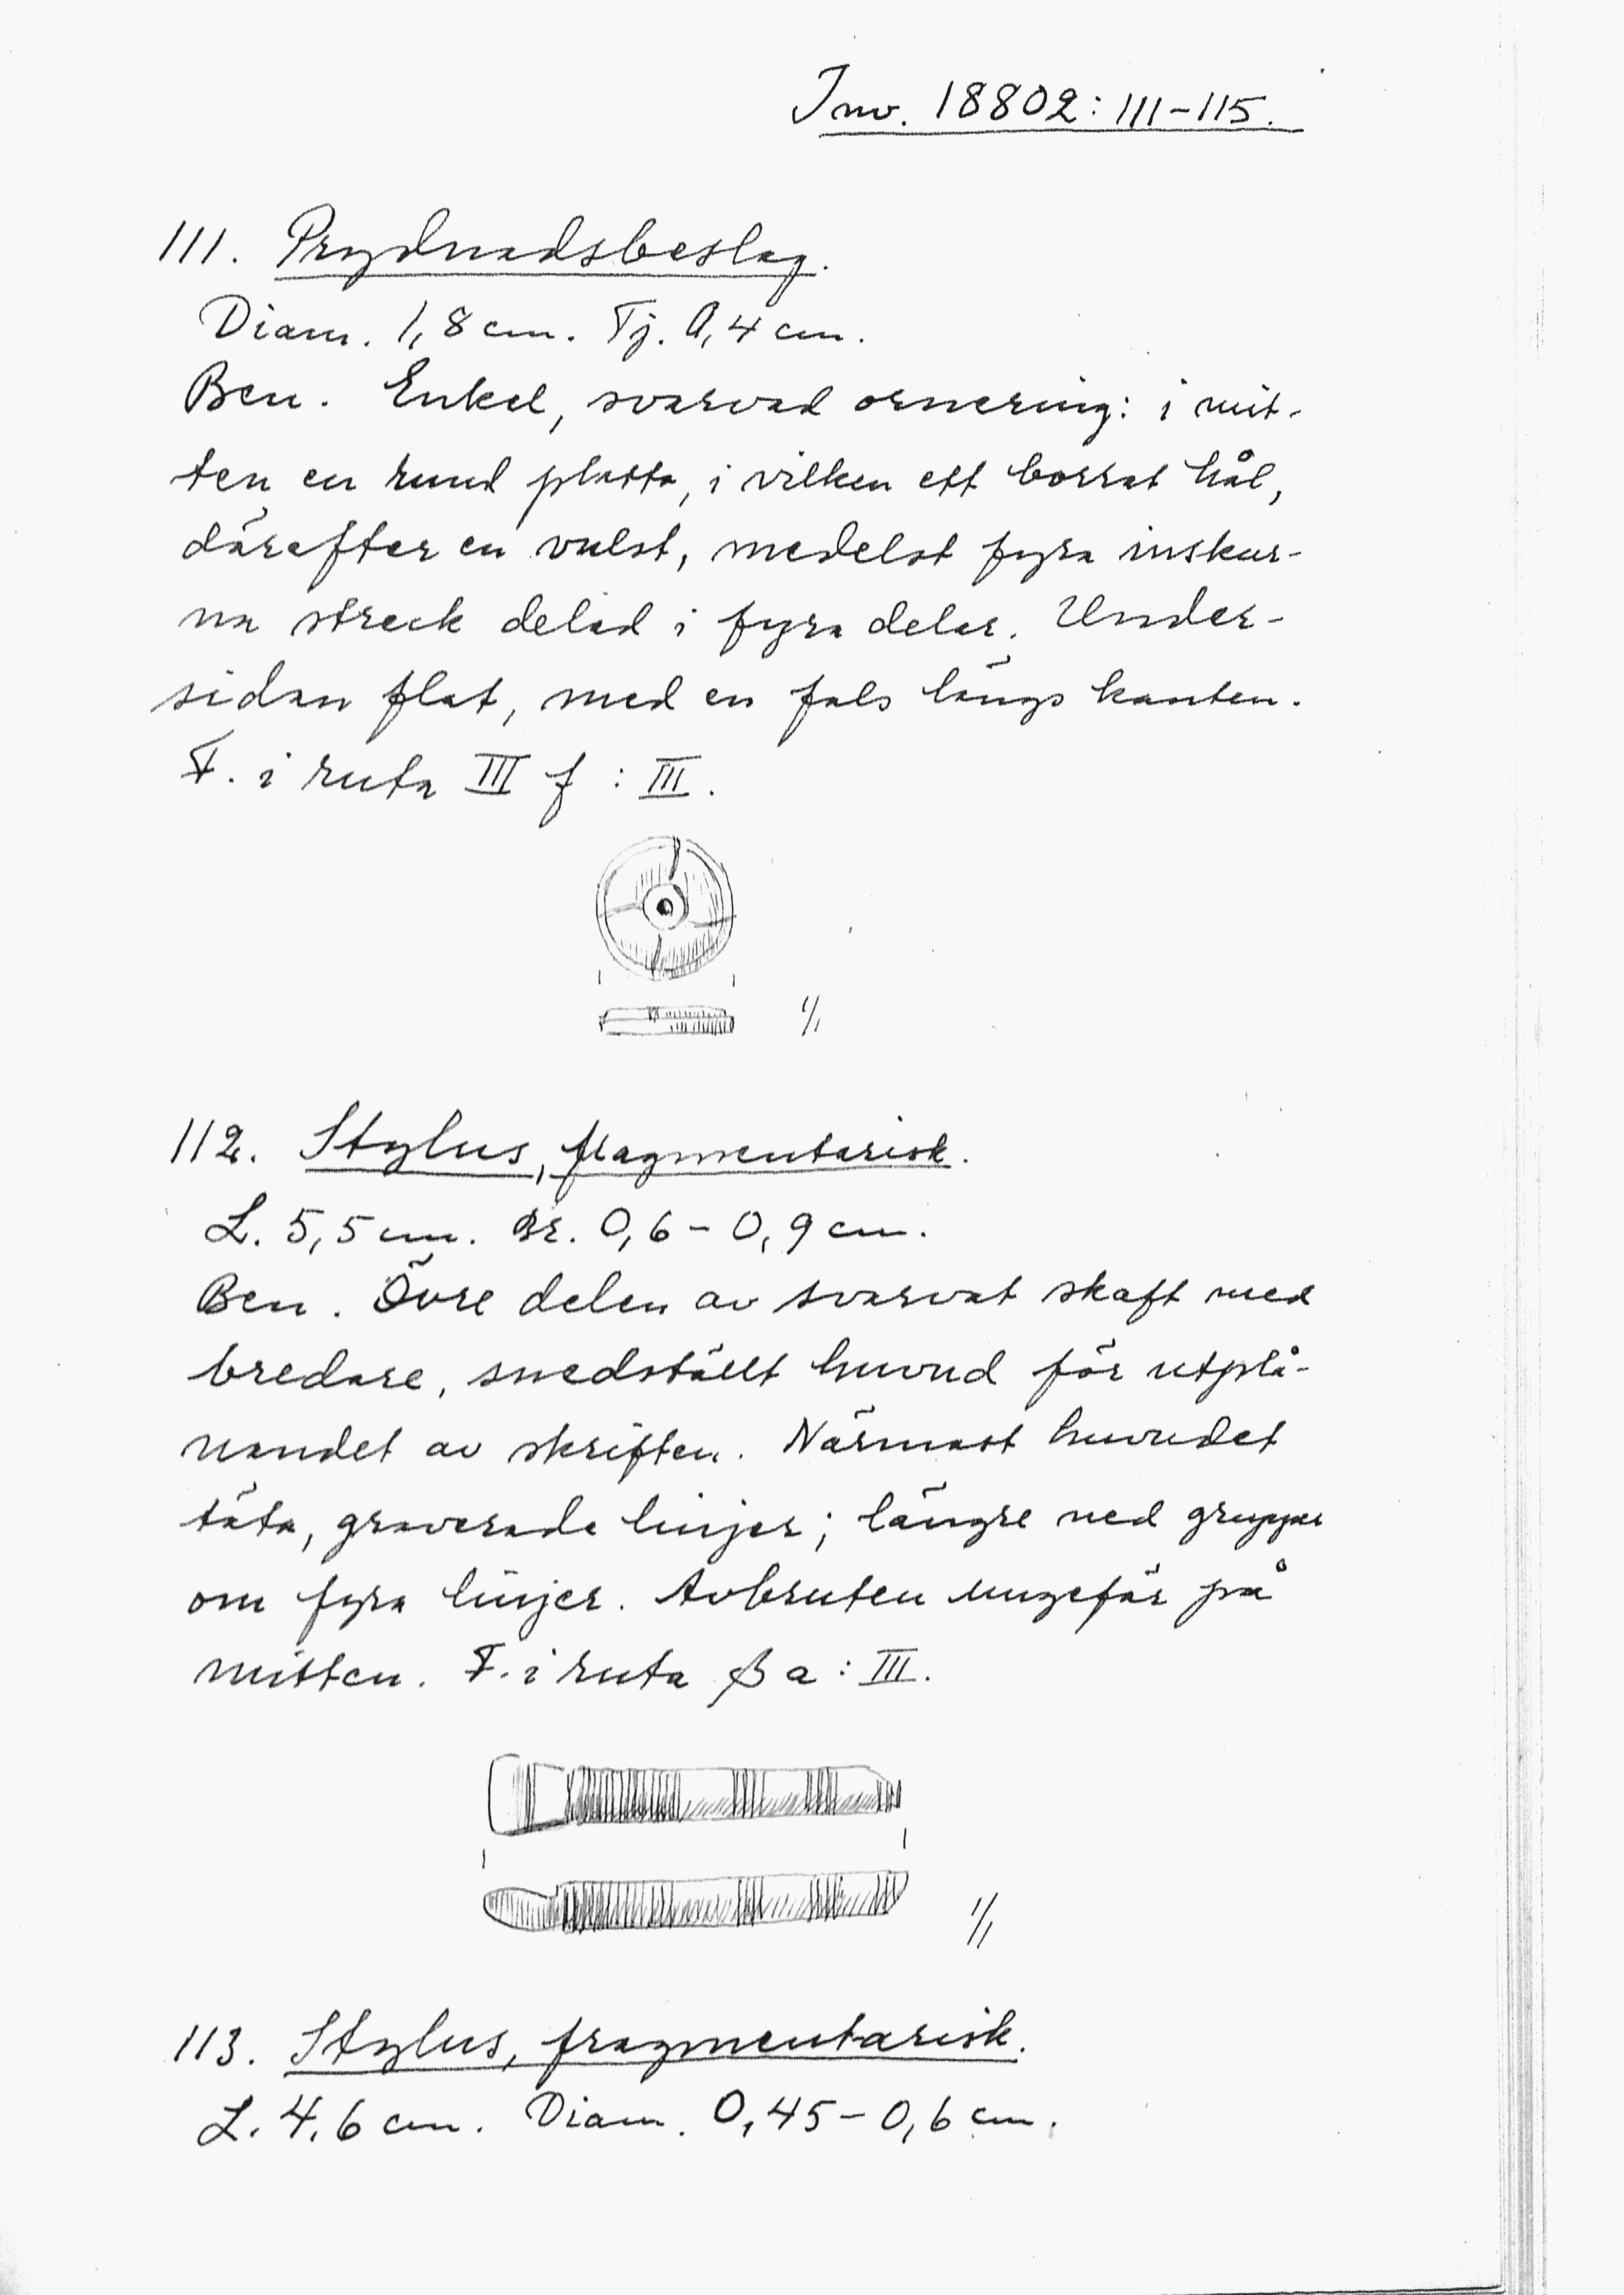 Inv. 18802: 111-115.
111. Prydnadsbeslag.
Diam. 1,8 cm. Tj. 0,4 cm.
Ben. Enkel, svarvad ornering: i mit-
ten en rund platta, i vilken ett borrat hål,
därefter en vulst, medelst fyra inskur-
na streck delad i fyra delar. Under-
sidan flat, med en fals längs kanten.
F. i ruta III f : III.
1/1
112. Stylus, fragmentarisk.
L. 5,5 cm. Br. 0,6 - 0,9 cm.
Ben. Övre delen av svarvat skaft med
bredare, snedställt huvud för utplå-
nandet av skriften. Närmast huvudet
täta, graverade linjer; längre ned grupper
om fyra linjer. Avbruten ungefär på
mitten. F. i ruta β a : III.
1/1
113. Stylus, fragmentarisk.
L. 4,6 cm. Diam. 0,45 - 0,6 cm.